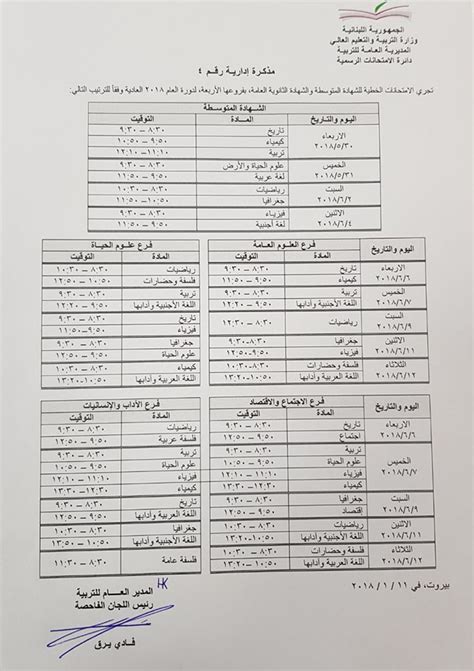 الجمهورية اللبنانية
وزارة التربية والتعليم العالي
المديرية العامة للتربية
دائرة الامتحانات الرسمية
مذكرة إدارية رقم ٤
تجري الامتحانات الخطية للشهادة المتوسطة والشهادة الثانوية العامة، بفروعها الأربعة، لدورة العام ٢٠١٨ العادية وفقاً للترتيب التالي:
الشهادة المتوسطة
اليوم والتاريخ المادة التوقيت
الاربعاء ٢٠١٨/٥/٣٠
تاريخ ٨:٣٠ – ٩:٣٠
كيمياء ٩:٥٠ – ١٠:٥٠
تربية ١١:١٠ – ١٢:١٠
الخميس ٢٠١٨/٥/٣١
علوم الحياة والأرض ٨:٣٠ – ٩:٣٠
لغة عربية ٩:٥٠ – ١١:٥٠
السبت ٢٠١٨/٦/٢
رياضيات ٨:٣٠ – ١٠:٣٠
جغرافيا ١٠:٥٠ – ١١:٥٠
الاثنين ٢٠١٨/٦/٤
فيزياء ٨:٣٠ – ٩:٣٠
لغة أجنبية ٩:٥٠ – ١١:٥٠
اليوم والتاريخ
فرع العلوم العامة
المادة التوقيت
الاربعاء ٢٠١٨/٦/٦
تاريخ ٨:٣٠ – ٩:٣٠
كيمياء ٩:٥٠ –
الخميس ٢٠١٨/٦/٧
تربية ٨:٣٠ – ٩:٣٠
اللغة الأجنبية وآدابها ٩:٥٠ – ١٢:٢٠
السبت ٢٠١٨/٦/٩
رياضيات ٨:٣٠ –
الاثنين ٢٠١٨/٦/١١
جغرافيا ٨:٣٠-٩:٣٠
فيزياء ٩:٥٠ –
الثلاثاء ٢٠١٨/٦/١٢
فلسفة وحضارات ٨:٣٠ – ١٠:٣٠
اللغة العربية وآدابها ١٠:٥٠ – ١٣:٢٠
فرع علوم الحياة
المادة التوقيت
رياضيات ٨:٣٠ – ١٠:٣٠
فلسفة وحضارات ١٠:٥٠ – ١٢:٥٠
تربية ٨:٣٠ – ٩:٣٠
اللغة الأجنبية وآدابها ٩:٥٠ – ١٢:٢٠
تاريخ ٨:٣٠ – ٩:٣٠
فيزياء ٩:٥٠ – ١١:٥٠
جغرافيا ٨:٣٠-٩:٣٠
علوم الحياة ٩:٥٠ – ١٢:٥٠
كيمياء ٨:٣٠ – ١٠:٣٠
اللغة العربية وآدابها ١٠:٥٠ – ١٣:٢٠
اليوم والتاريخ
فرع الاجتماع والاقتصاد
المادة التوقيت
الاربعاء ٢٠١٨/٦/٦
تاريخ ٨:٣٠ – ٩:٣٠
اجتماع ٩:٥٠ – ١٢:٥٠
الخميس ٢٠١٨/٦/٧
تربية ٨:٣٠ – ٩:٣٠
علوم الحياة ٩:٥٠ – ١٠:٥٠
فيزياء ١١:١٠ – ١٢:١٠
كيمياء ١٢:٣٠ – ١٣:٣٠
السبت ٢٠١٨/٦/٩
جغرافيا ٨:٣٠ – ٩:٣٠
إقتصاد ٩:٥٠ –
الاثنين ٢٠١٨/٦/١١
رياضيات ٨:٣٠ – ١٠:٣٠
اللغة الأجنبية وآدابها ١٠:٥٠ –
الثلاثاء ٢٠١٨/٦/١٢
فلسفة وحضارات ٨:٣٠ – ١٠:٣٠
اللغة العربية وآدابها ١٠:٥٠ –
فرع الآداب والانسانيات
المادة التوقيت
رياضيات ٨:٣٠ – ٩:٣٠
فلسفة عربية ٩:٥٠ – ١٢:٥٠
تربية ٨:٣٠ – ٩:٣٠
علوم الحياة ٩:٥٠ – ١٠:٥٠
فيزياء ١١:١٠ – ١٢:١٠
كيمياء ١٢:٣٠ – ١٣:٣٠
تاريخ ٨:٣٠ – ٩:٣٠
اللغة الأجنبية وآدابها ٩:٥٠ –
جغرافيا ٨:٣٠ – ١٠:٣٠
اللغة العربية وآدابها ١٠:٥٠ – ١٣:٥٠
فلسفة عامة ٨:٣٠ – ١١:٣٠
بيروت، في ١١ / ١ / ٢٠١٨
المدير العام للتربية
رئيس اللجان الفاحصة
فادي يرق